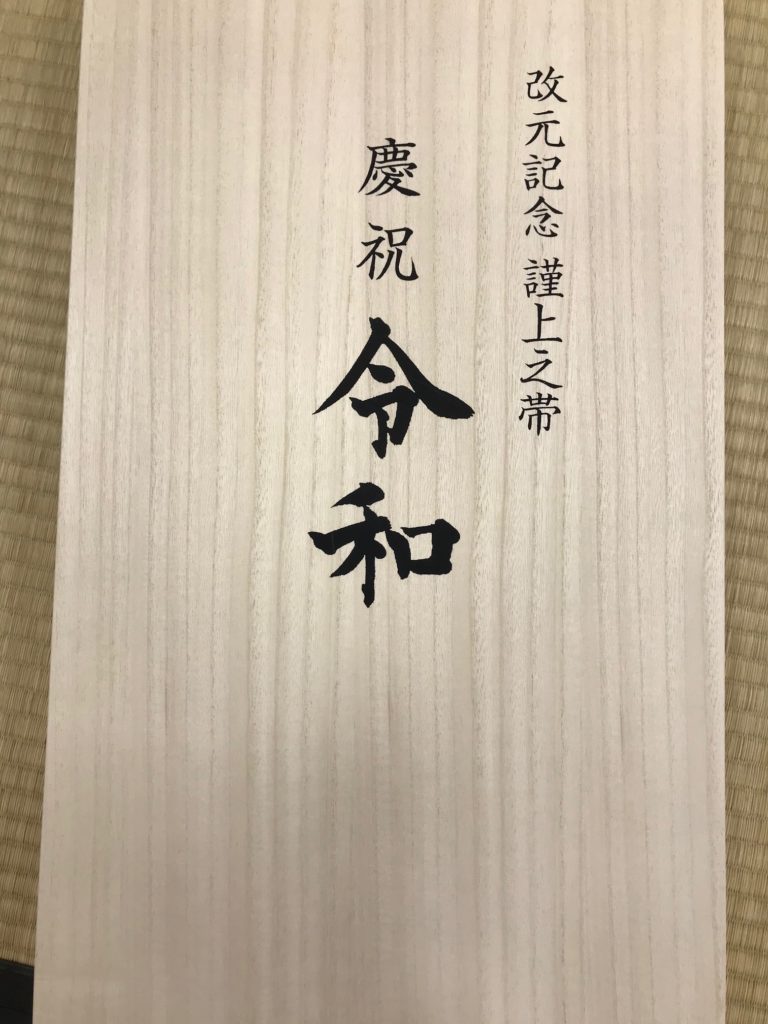 改元記念 謹上之帯
慶祝令和